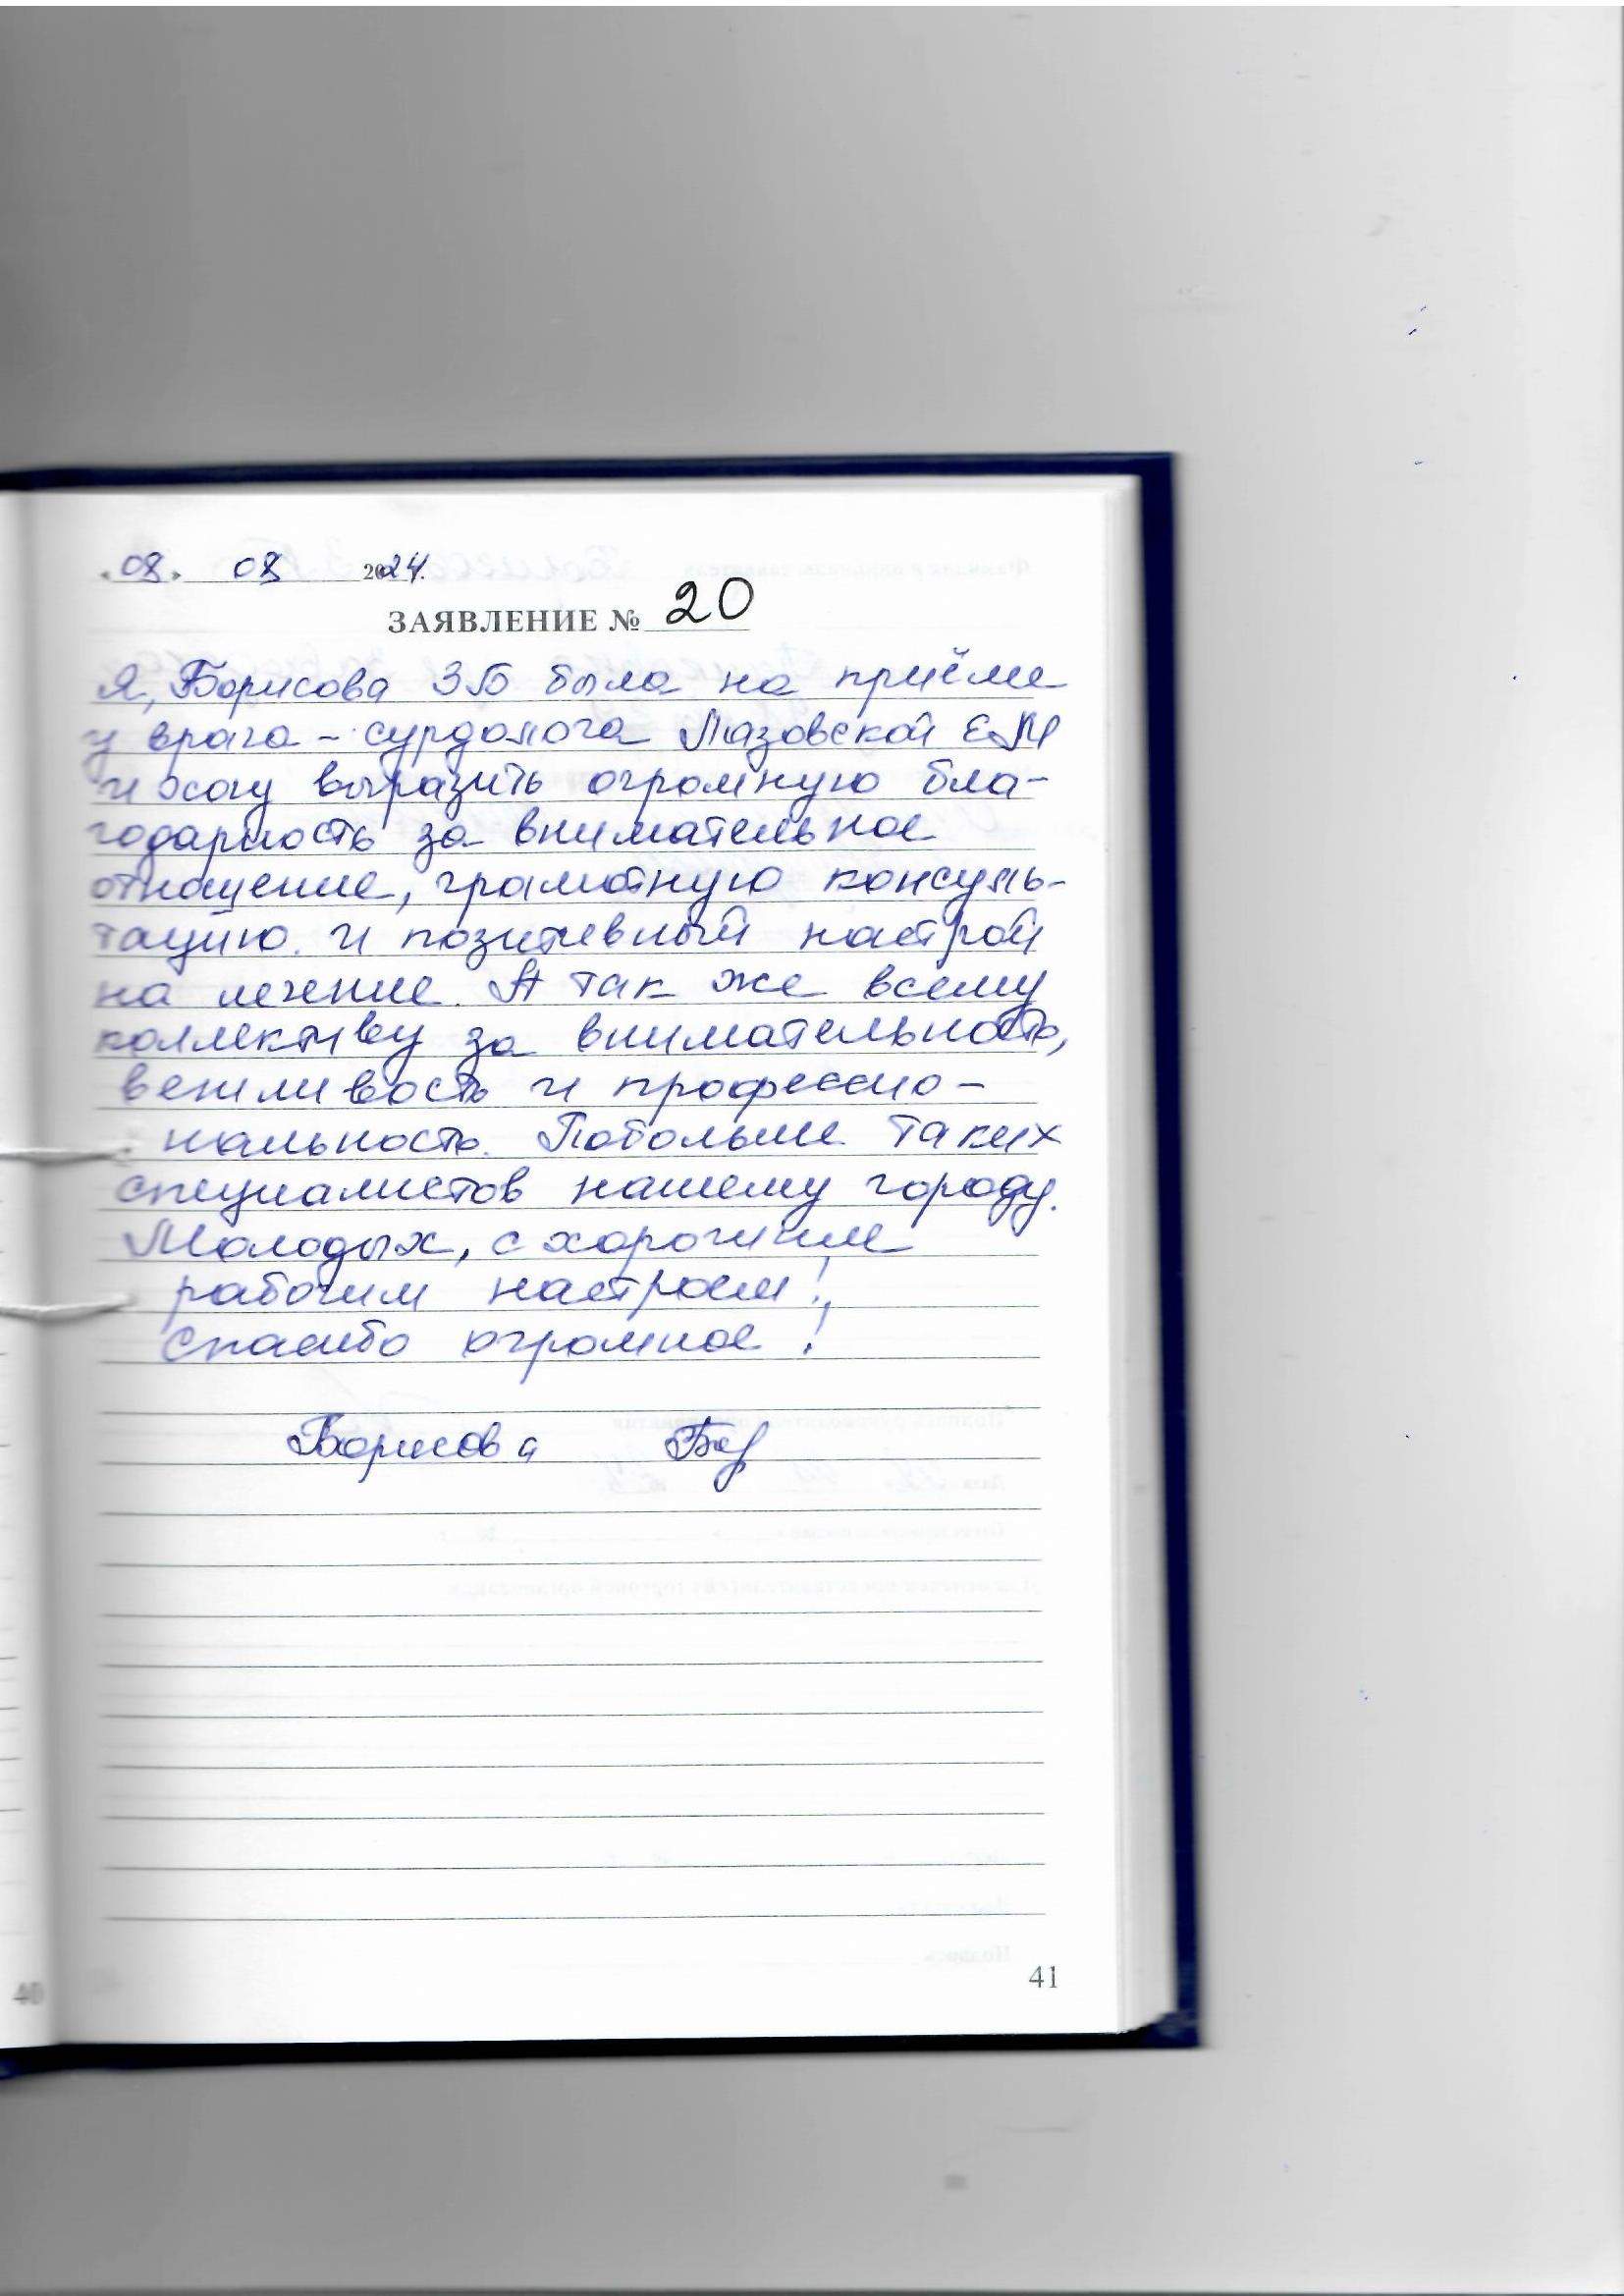 «08» 08 2024г.
ЗАЯВЛЕНИЕ № 20
Я, Борисова ЗБ была на приёме
у врача - сурдолога Лазовской Е.М
и хочу выразить огромную бла-
годарность за внимательное
отношение, грамотную консуль-
тацию и позитивный настрой
на лечение. А так же всему
коллективу за внимательность,
вежливость и профессио-
нальность. Побольше таких
специалистов нашему городу.
Молодых, с хорошим
рабочим настроем!
Спасибо огромное!
Борисова Бор
41
40